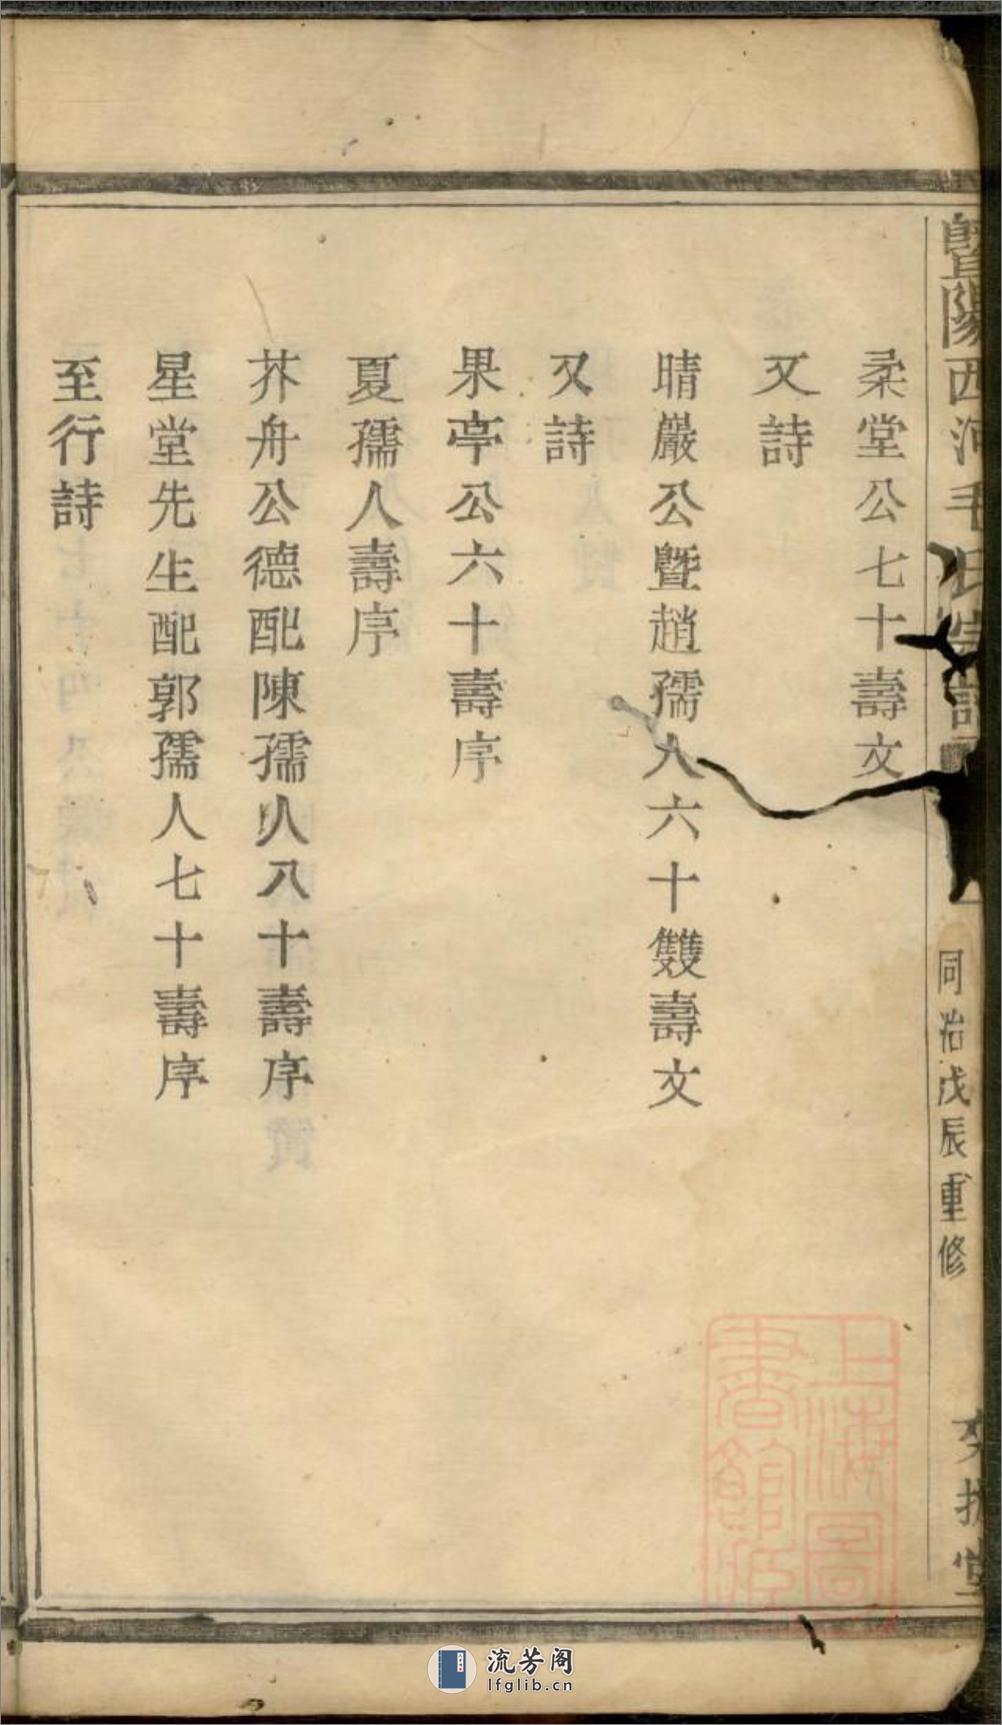 暨陽西河毛氏宗譜
同治戊辰重修
柔堂公七十壽文
又詩
晴嚴公暨趙孺人六十雙壽文
又詩
果亭公六十壽序
夏孺人壽序
芥舟公德配陳孺人八十壽序
星堂先生配郭孺人七十壽序
至行詩
上海圖
書館藏
流芳阁
lfglib.cn